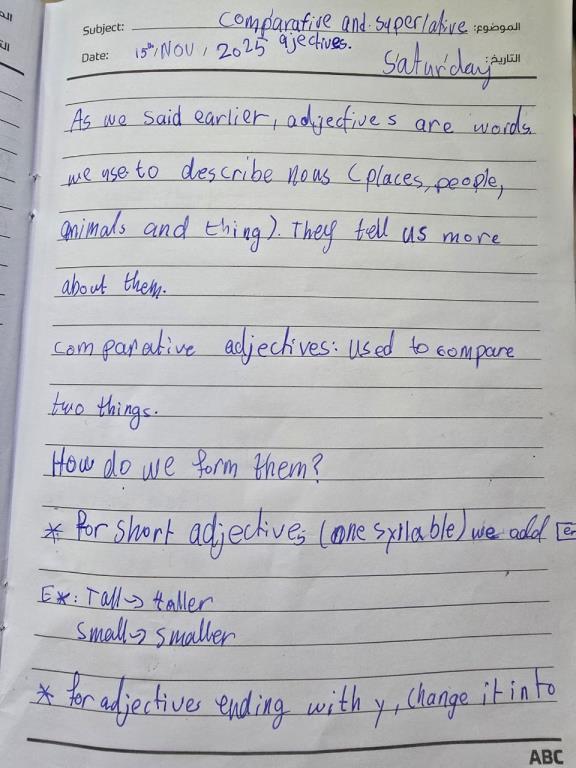 Subject: Comparative and superlative الموضوع:
ajectives.
Date: 15th, NOV, 2025 Saturday التاريخ:
As we said earlier, adjectives are words
we use to describe nous (places, people,
animals and thing). They tell us more
about them.
comparative adjectives: Used to compare
two things.
How do we form them?
* for short adjectives (one syllable) we add er
Ex: Tall → taller
small → smaller
* for adjectives ending with y, change it into
ABC